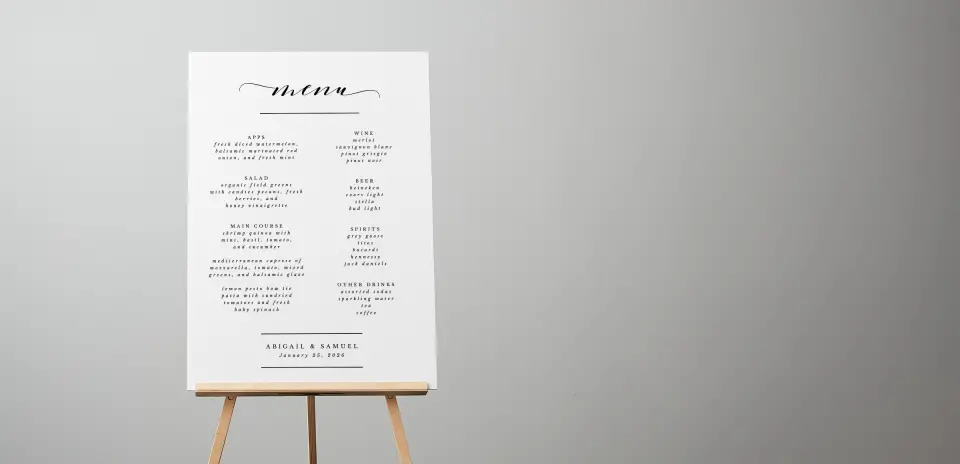 menu
APPS
fresh diced watermelon,
balsamic marinated red
onion, and fresh mint
SALAD
organic field greens
with candies pecans, fresh
berries, and
honey vinaigrette
MAIN COURSE
shrimp quinoa with
mint, basil, tomato,
and cucumber
mediterranean caprese of
mozzarella, tomato, mixed
greens, and balsamic glaze
lemon pesto bow tie
pasta with sundried
tomatoes and fresh
baby spinach
WINE
merlot
sauvignon blanc
pinot grigio
pinot noir
BEER
heineken
coors light
stella
bud light
SPIRITS
grey goose
titos
bacardi
hennessy
jack daniels
OTHER DRINKS
assorted sodas
sparkling water
tea
coffee
ABIGAIL & SAMUEL
January 25, 2026